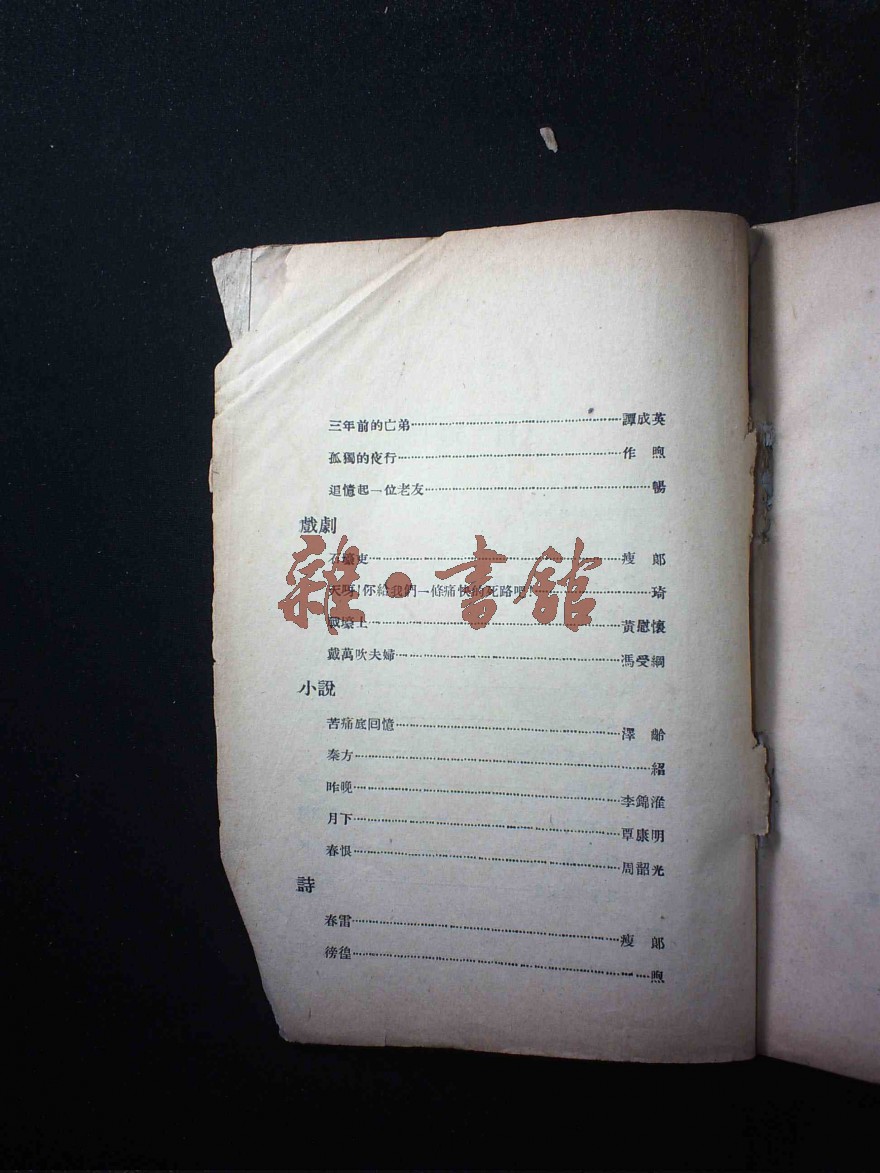 三年前的亡弟⋯⋯譚成英
孤獨的夜行⋯⋯作 煦
追憶起一位老友⋯⋯暢
戲劇
石壕吏⋯⋯瘦 郎
天呀！你給我們一條痛快的死路吧！⋯⋯琦
戰壕上⋯⋯黃慰懷
戴萬吹夫婦⋯⋯馮受綱
小說
苦痛底回憶⋯⋯澤 齡
秦方⋯⋯紹
昨晚⋯⋯李錦淮
月下⋯⋯覃康明
春恨⋯⋯周韶光
詩
春雷⋯⋯瘦 郎
徬徨⋯⋯煦
雜·書館